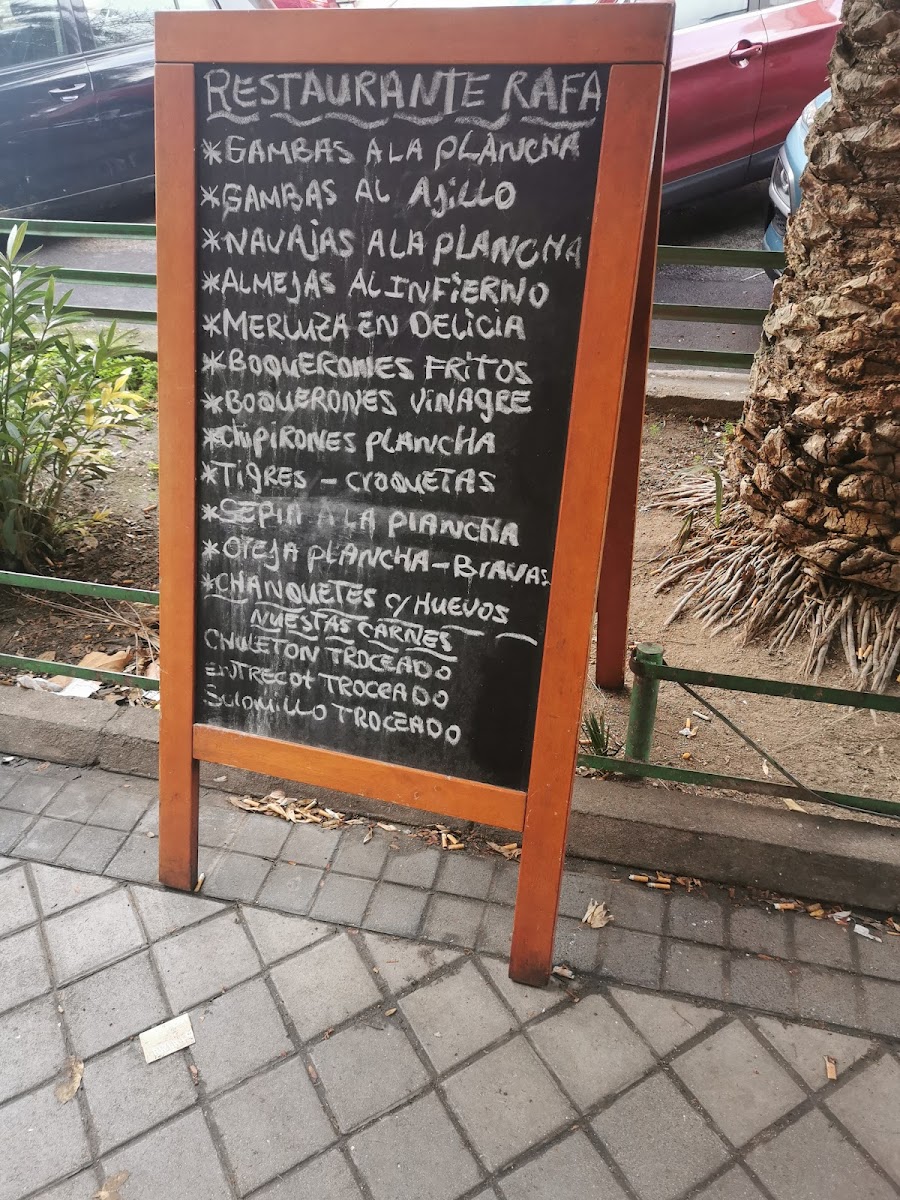 RESTAURANTE RAFA
*GAMBAS A LA PLANCHA
*GAMBAS AL AjiLLO
*NAVAJAS A LA PLANCHA
*ALMEJAS AL INFiERNO
*MERLUZA EN DELICIA
*BOQUERONES FRiTOS
*BOQUERONES ViNAGRE
*CHiPiRONES PLANCHA
*TigRES - CROQUETAS
*SEPIA A LA PlANCHA
*OREJA PLANCHA - BRAVAS
*CHANQUETES C/ HUEVOS
NUESTAS CARNES
CHULETON TROCEADO
ENTRECOt TROCEADO
SOLOMiLLO TROCEADO